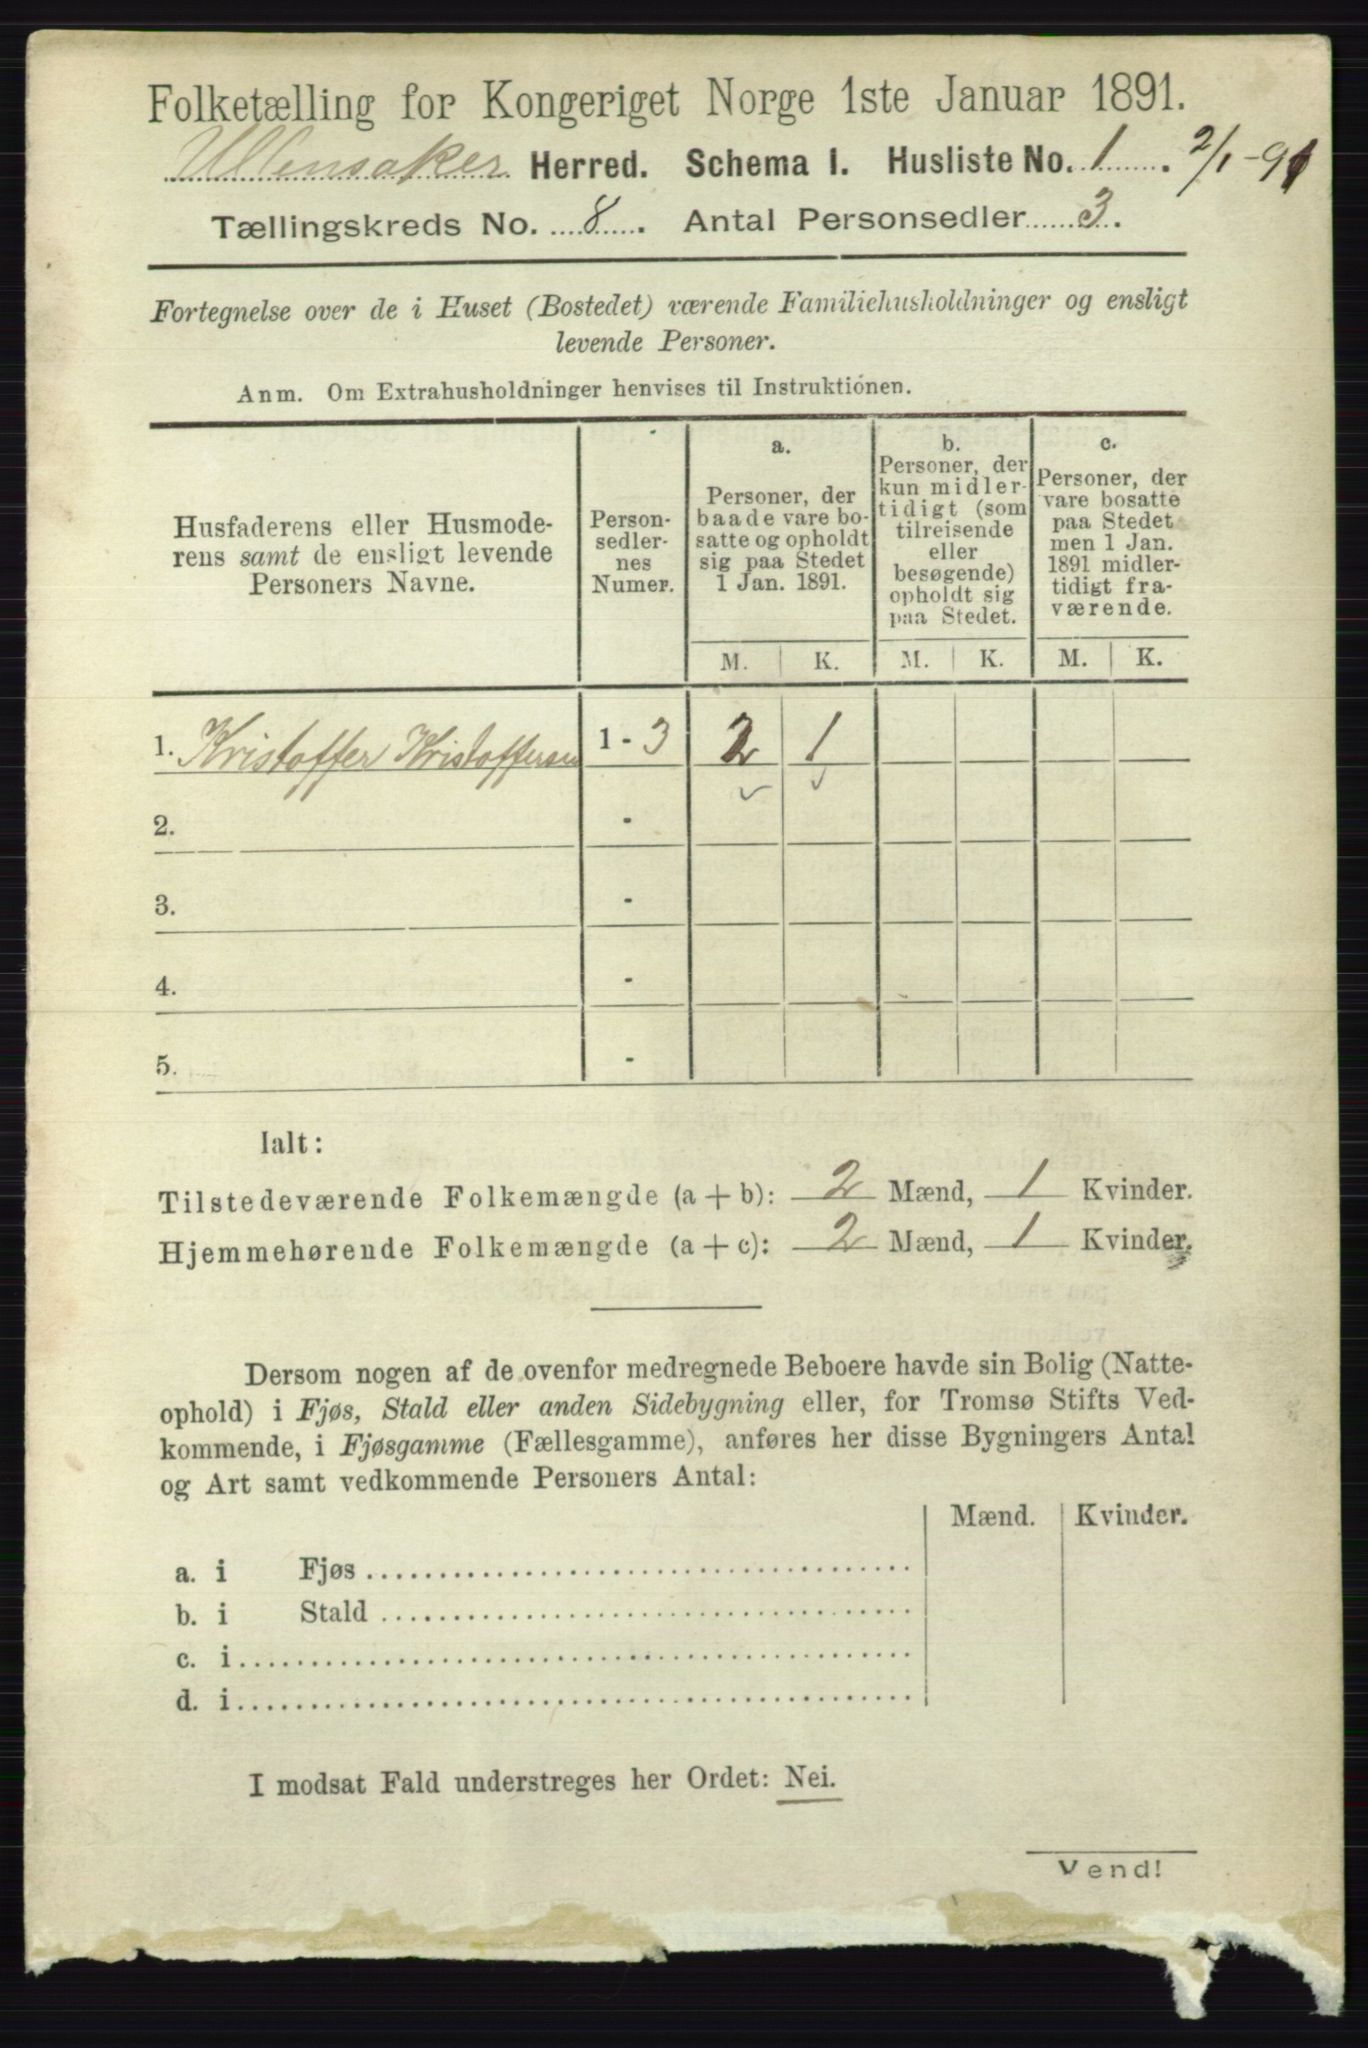 Folketælling for Kongeriget Norge 1ste Januar 1891.
Ullensaker Herred. Schema I. Husliste No. 1. 2/1-91
Tællingskreds No. 8. Antal Personsedler 3.
Fortegnelse over de i Huset (Bostedet) værende Familiehusholdninger og ensligt
levende Personer.
Anm. Om Extrahusholdninger henvises til Instruktionen.
Husfaderens eller Husmode-
rens samt de ensligt levende
Personers Navne.
Person-
sedler-
nes
Numer.
a.
Personer, der
baade vare bo-
satte og opholdt
sig paa Stedet
1 Jan. 1891.
b.
Personer, der
kun midler-
tidigt (som
tilreisende
eller
besøgende)
opholdt sig
paa Stedet.
c.
Personer, der
vare bosatte
paa Stedet
men 1 Jan.
1891 midler-
tidigt fra-
værende.
M. K. M. K. M. K.
1. Kristoffer Kristoffersen 1 - 3 2 1
2. -
3. -
4. -
5. -
Ialt:
Tilstedeværende Folkemængde (a + b): 2 Mænd, 1 Kvinder.
Hjemmehørende Folkemængde (a + c): 2 Mænd, 1 Kvinder.
Dersom nogen af de ovenfor medregnede Beboere havde sin Bolig (Natte-
ophold) i Fjøs, Stald eller anden Sidebygning eller, for Tromsø Stifts Ved-
kommende, i Fjøsgamme (Fællesgamme), anføres her disse Bygningers Antal
og Art samt vedkommende Personers Antal:
Mænd. Kvinder.
a. i Fjøs
b. i Stald
c. i
d. i
I modsat Fald understreges her Ordet: Nei.
Vend!